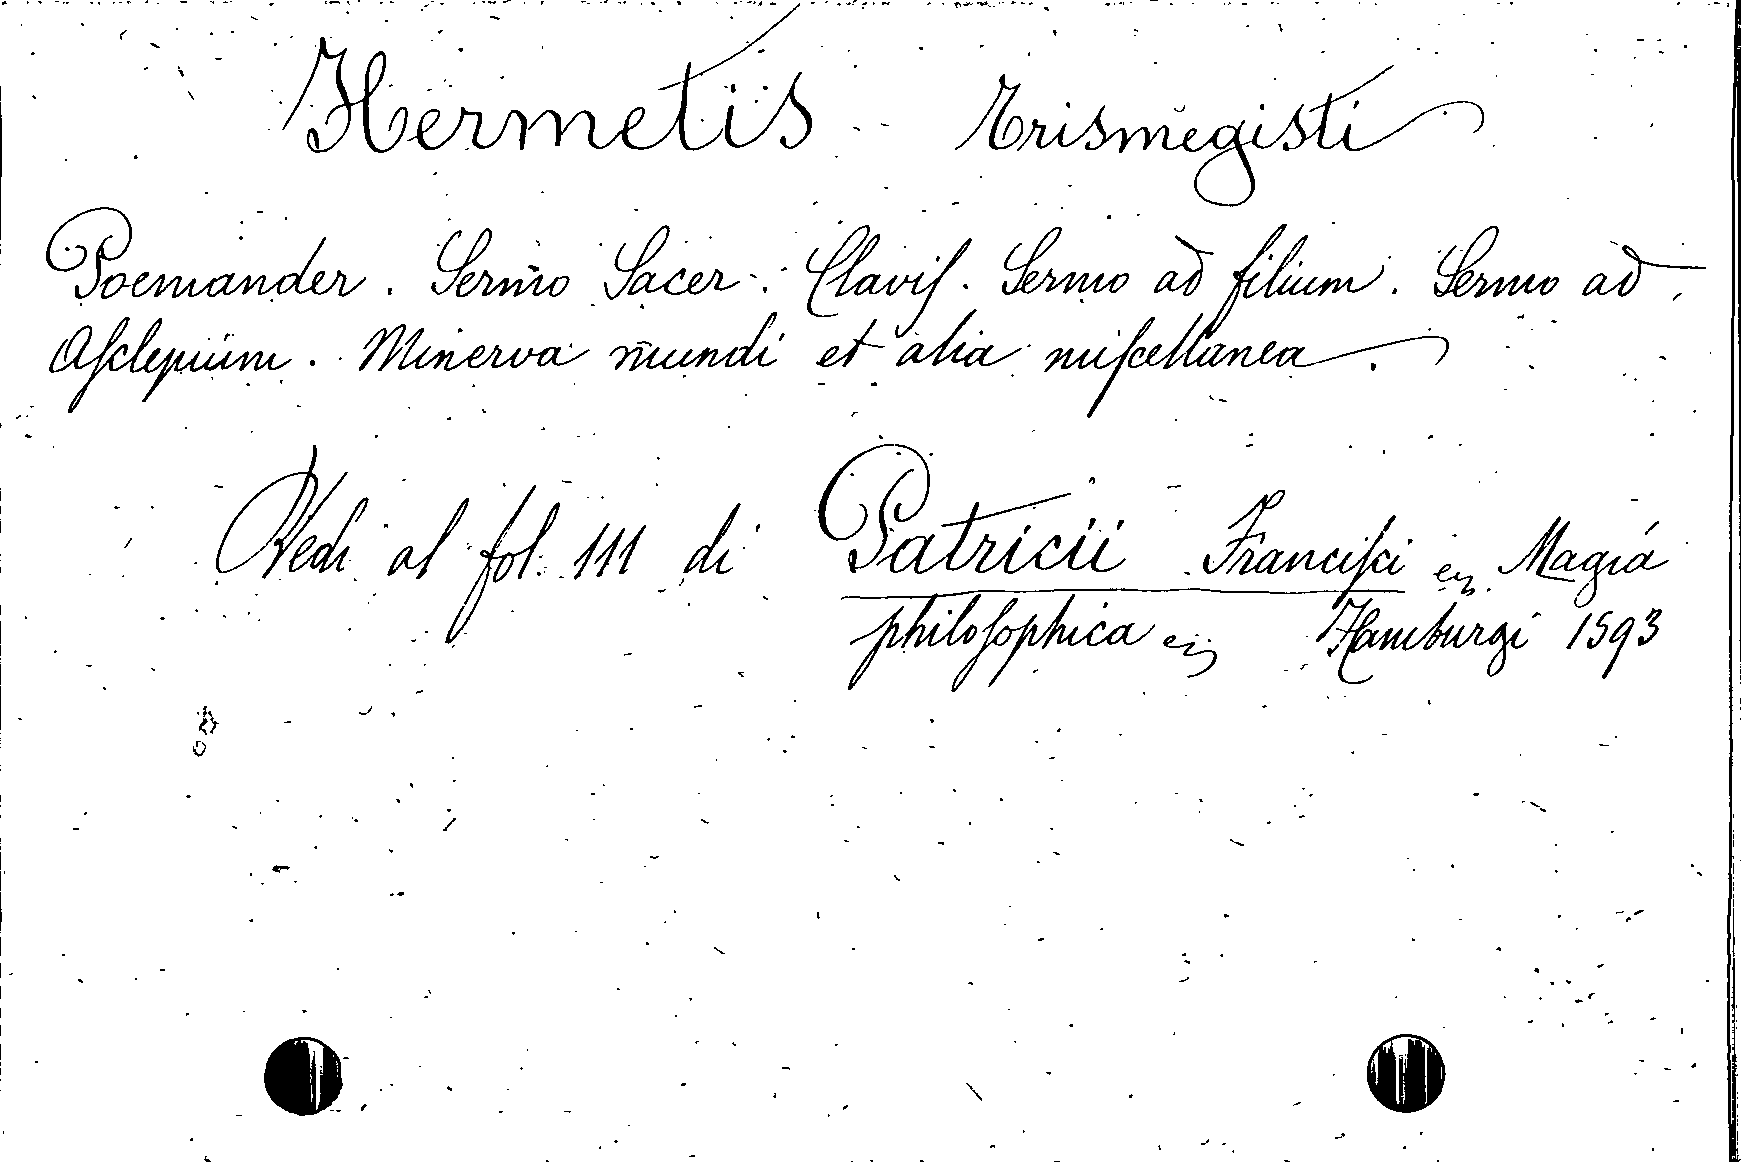 Hermetis Trismegisti
Poemander. Sermo Sacer. Claviſ. Sermo ad filium. Sermo ad
Aſclepium. Minerva mundi et alia miſcellanea.
Vedi al fol. 111 di Patricii Franciſci en Magia
philoſophica en Hamburgi 1593